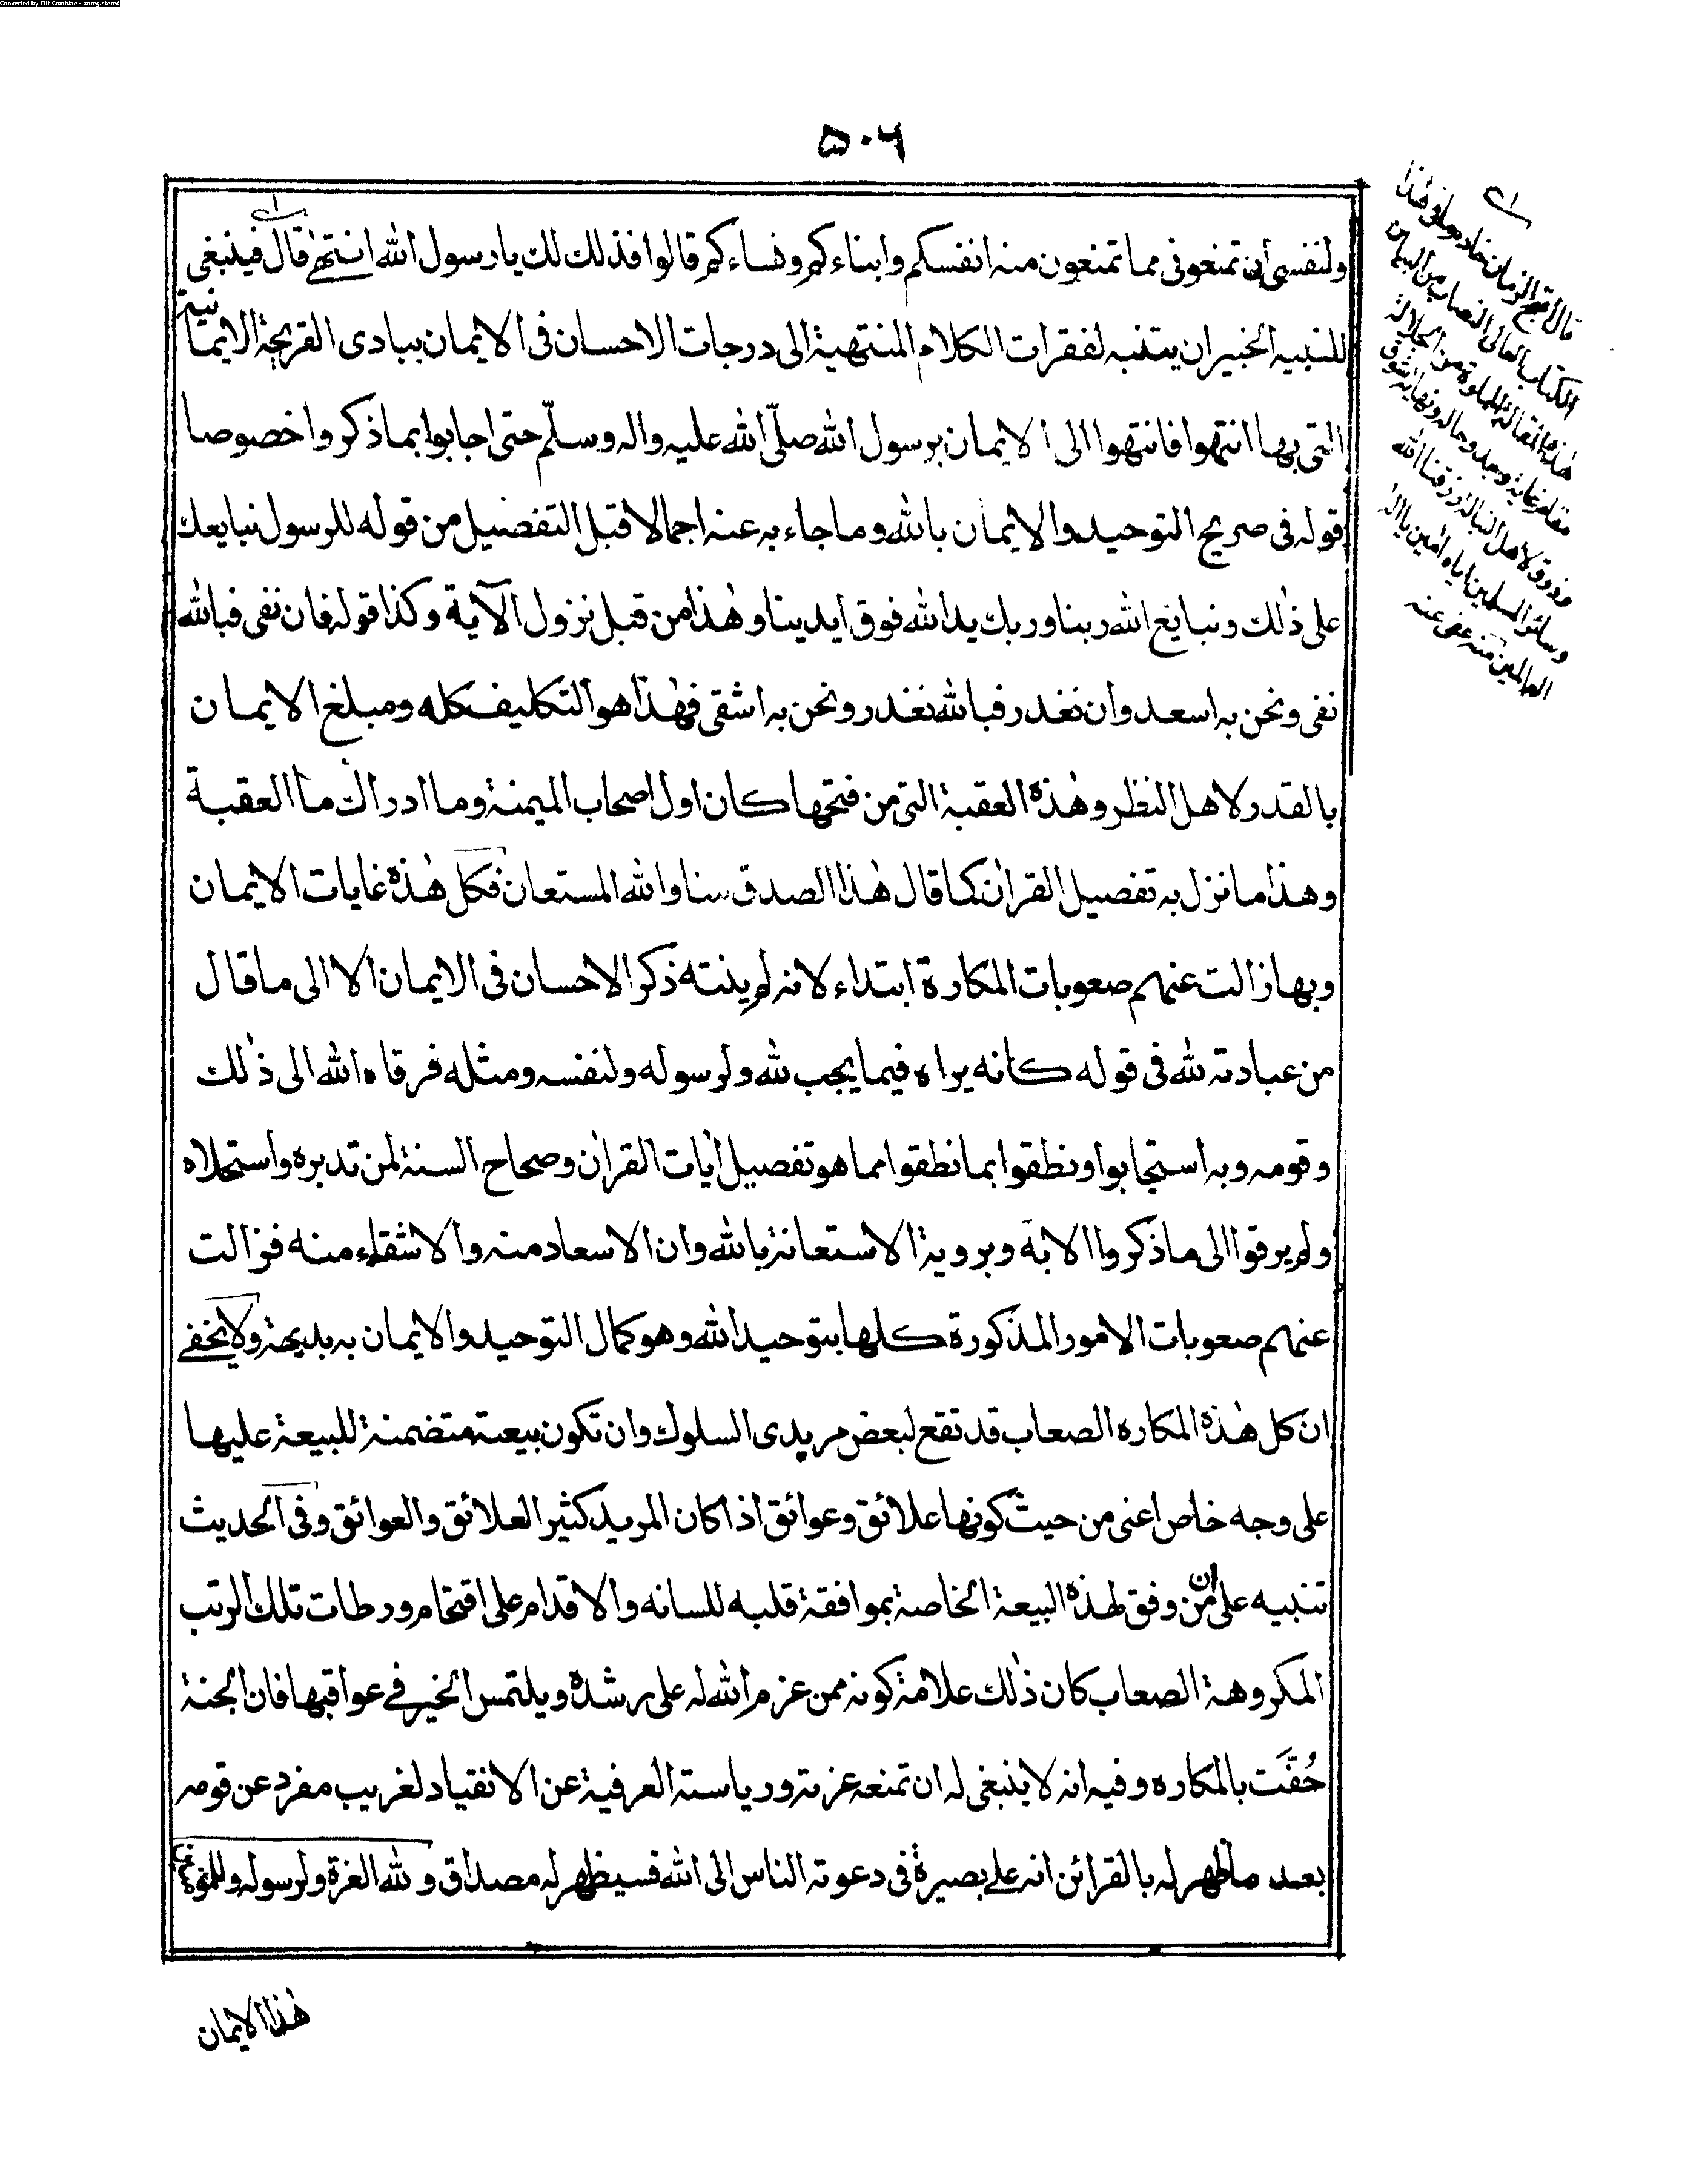 Converted by Tiff Combine - unregistered
۵۰۶
ولنفسی أن تمنعونی مما تمنعون منه انفسکم وابناءکم ونساءکم قالوا فذلك لك یا رسول الله انتهٰی قال فینبغی
للنبیه الخبیر ان یتنبه لفقرات الکلام المنتهیة الی درجات الاحسان فی الایمان ببادی القریحة الایمانیة
التی بها انتهوا فانتهوا الی الایمان برسول الله صلّی الله علیه واله وسلّم حتی اجابوا بما ذکروا خصوصا
قوله فی صریح التوحید والایمان بالله وما جاء به عنه اجمالا قبل التفصیل من قوله للرسول نبایعك
علی ذٰلك ونبایع الله ربنا وربك ید الله فوق ایدینا وهٰذا من قبل نزول الآیة وکذا قوله فان نفی فبالله
نفی ونحن به اسعد وان نغدر فبالله نغدر ونحن به اشقی فهٰذا هو التکلیف کله ومبلغ الایمان
بالقدر لاهل النظر وهٰذه العقبة التی من فتحها کان اول اصحاب المیمنة وما ادراك ما العقبة
وهذا ما نزل به تفصیل القراٰن کما قال هٰذا الصدق منا والله المستعان فکل هٰذه غایات الایمان
وبها زالت عنهم صعوبات المکارة ابتداء لانه لم ینته ذکر الاحسان فی الایمان الا الی ما قال
من عبادته لله فی قوله کانه یراه فیما یجب لله ولرسوله ولنفسه ومثله فرقاه الله الی ذٰلك
وقومه وبه استجابوا ونطقوا بما نطقوا مما هو تفصیل اٰیات القراٰن وصحاح السنة لمن تدبره واستحلاه
ولم یرقوا الی ما ذکروا الا به وبرویة الاستعانة بالله وان الاسعاد منه والاشقاء منه فزالت
عنهم صعوبات الامور المذکورة کلها بتوحید الله وهو کمال التوحید والایمان به بدیهة ولا یخفی
ان کل هٰذه المکاره الصعاب قد تقع لبعض مریدی السلوك وان تکون بیعته متضمنة للبیعة علیها
علی وجه خاص اعنی من حیث کونها علائق وعوائق اذا کان المرید کثیر العلائق والعوائق وفی الحدیث
تنبیه علی ان من وفق لهذه البیعة الخاصة بموافقة قلبه للسانه والاقدام علی اقتحام ورطات تلك الرتب
المکروهة الصعاب کان ذٰلك علامة کونه ممن عزم الله له علی رشده ویلتمس الخیر فی عواقبها فان الجنة
حُفَّت بالمکاره وفیه انه لا ینبغی له ان تمنعه عزته وریاسته العرفیة عن الانقیاد لغریب مفرد عن قومه
بعد ما ظهر له بالقرائن انه علی بصیرة فی دعوته الناس الی الله فسیظهر له مصداق ولله العزة ولرسوله وللمؤمنین
هٰذا الایمان
الکتاب العالی النصاب من البیان
وسائر المسلمین ایاه اٰمین یا اله
العالمین منه عفی عنه